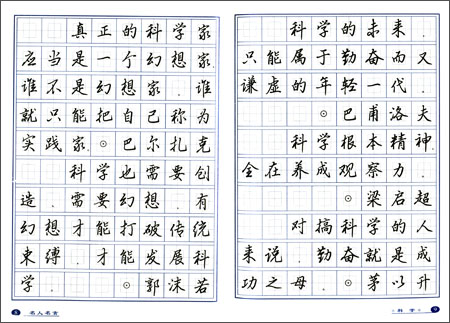 真正的科学家
应当是一个幻想家
谁不是幻想家.谁
就只能把自己称为
实践家.⊙巴尔扎克
科学也需要创
造.需要幻想.有
幻想才能打破传统
束缚.才能发展科
学.⊙郭沫若
名人名言
科学的未来.
只能属于勤奋而又
谦虚的年轻一代.
⊙巴甫洛夫
科学根本精神.
全在养成观察力.
⊙梁启超
对搞科学的人
来说.勤奋就是成
功之母.⊙茅以升
科学
9